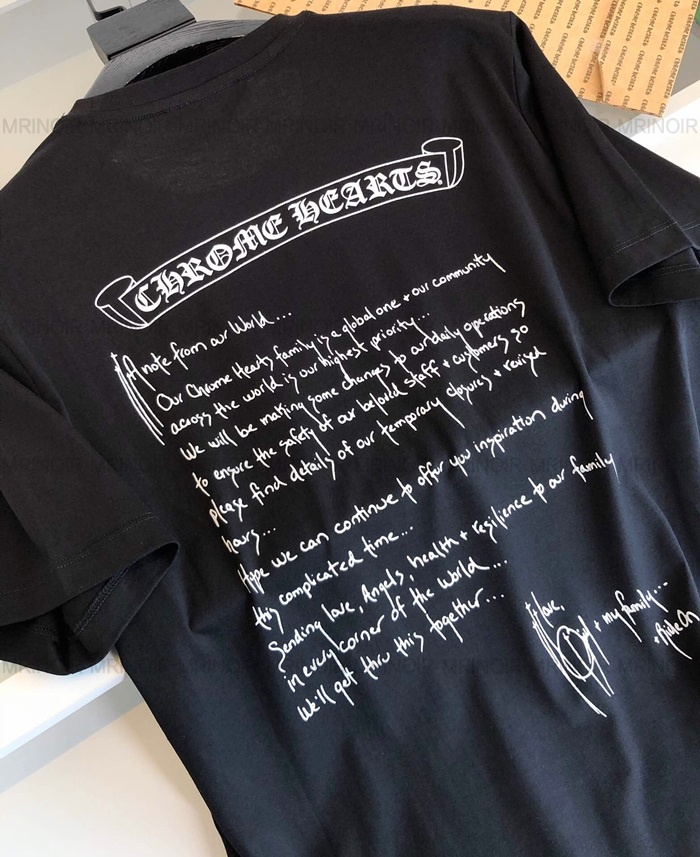 CHROME HEARTS
A note from our World...
Our Chrome Hearts family is a global one + our community
across the world is our highest priority...
We will be making some changes to our daily operations
to ensure the safety of our beloved staff + customers so
please find details of our temporary closures + revised
hours...
Hope we can continue to offer you inspiration during
this complicated time...
Sending love, Angels, health + resilience to our family
in every corner of the world...
We'll get thru this together...
+ love,
+ my family...
MRINOIR MRINOIR
MRINOIR MRINOIR